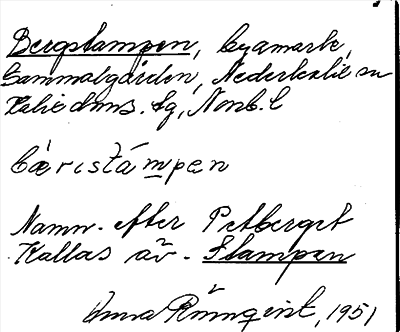 Bergstampen, byamark,
Gammalgården, Nederkalix sn
Kalix dms. tg, Norrb. l
bæristámpen
Namn. efter Petberget
Kallas äv. Stampen
Anna Rönnqvist, 1951